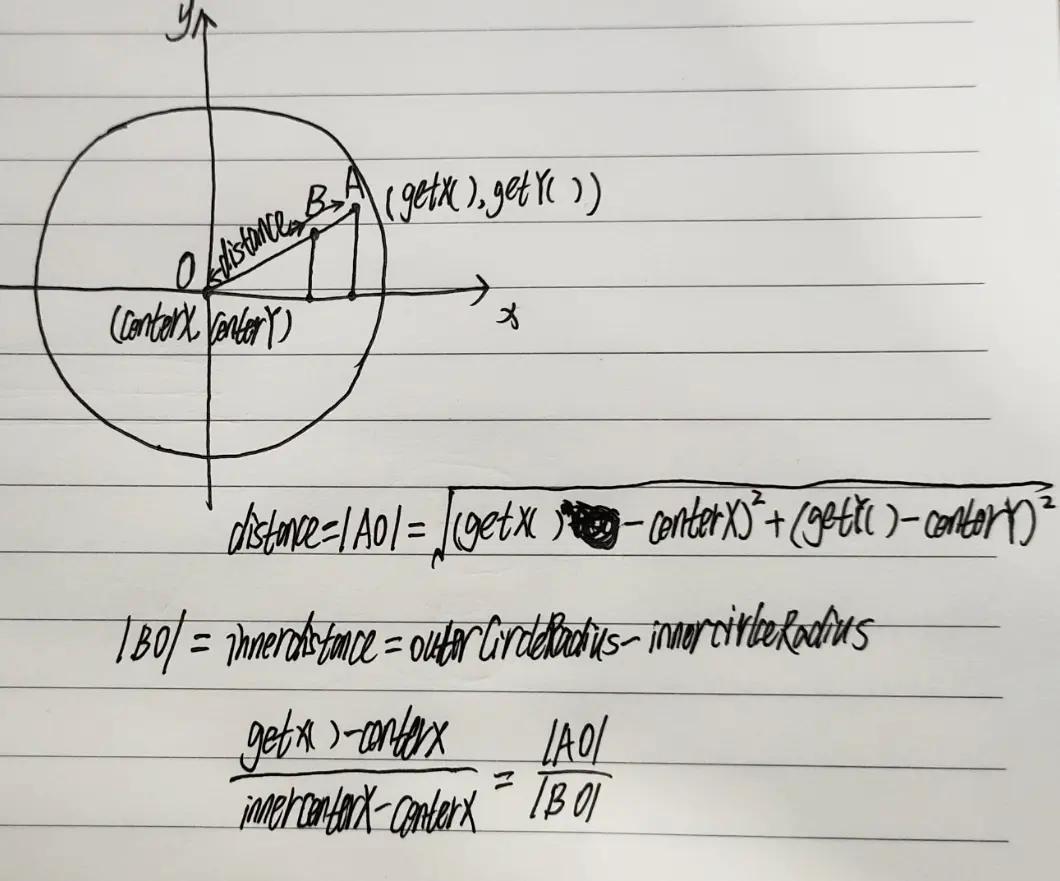 y
B A (getX(),getY())
distance
O
(centerX, centerY)
x
distance=|AO|=√(getX()-centerX)²+(getY()-centerY)²
|BO|=innerdistance=outerCircleRadius-innercircleRadius
getX()-centerX
innercenterX-centerX
=
|AO|
|BO|